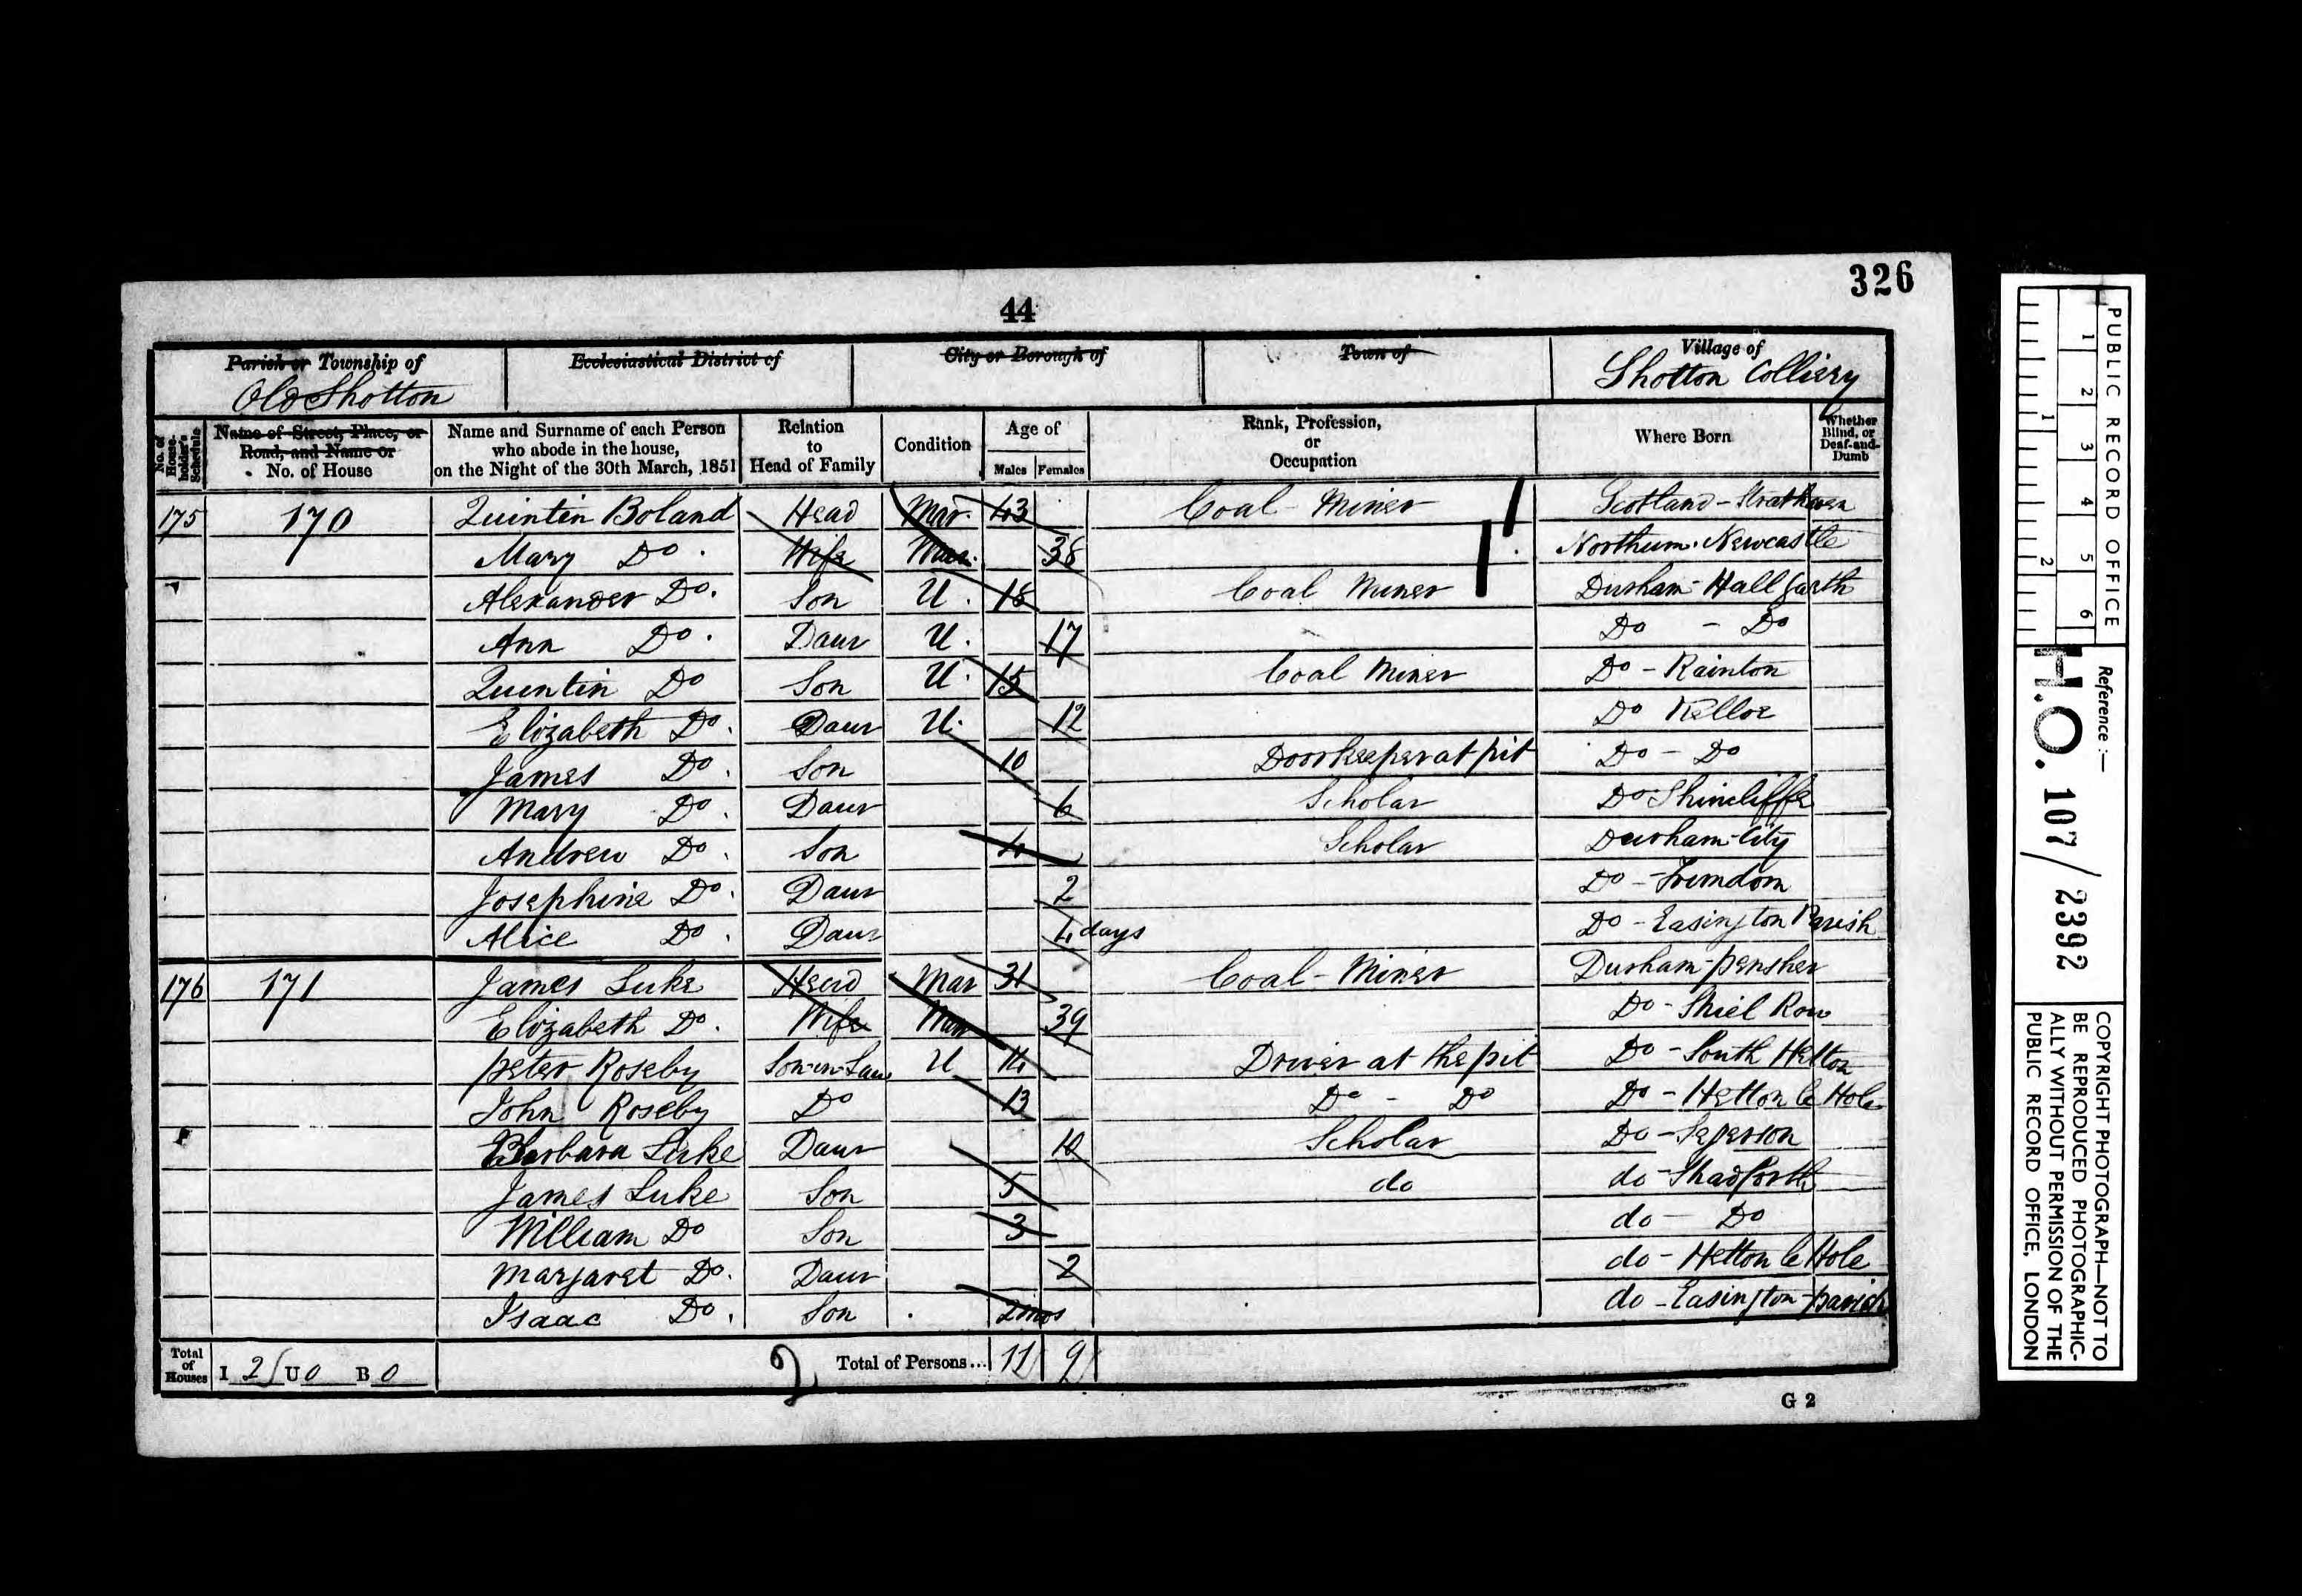 326
44
Parish or Township of Ecclesiastical District of City or Borough of Town of Village of
Old Shotton Shotton Colliery
No. of House-holder's Schedule Name of Street, Place, or Road, and Name or No. of House Name and Surname of each Person who abode in the house, on the Night of the 30th March, 1851 Relation to Head of Family Condition Age of Males Females Rank, Profession, or Occupation Where Born Whether Blind, or Deaf-and-Dumb
175 170 Quintin Boland Head Mar. 43 Coal Miner Scotland - Strathaven
Mary Do. Wife Mar. 38 Northum. Newcastle
Alexander Do. Son U. 18 Coal Miner Durham - Hallgarth
Ann Do. Daur U. 17 Do - Do
Quintin Do Son U. 15 Coal Miner Do - Rainton
Elizabeth Do. Daur U. 12 Do Kelloe
James Do. Son 10 Doorkeeper at pit Do - Do
Mary Do. Daur 6 Scholar Do Shincliffe
Andrew Do. Son 4 Scholar Durham - City
Josephine Do. Daur 2 Do - Trimdom
Alice Do. Daur 4 days Do - Easington Parish
176 171 James Luke Head Mar 31 Coal - Miner Durham - pensher
Elizabeth Do. Wife Mar 39 Do - Shiel Row
peter Roseby Son-in-Law U 14 Driver at the pit Do - South Hetton
John Roseby Do 13 Do - Do Do - Hetton le Hole
Barbara Luke Daur 10 Scholar Do -
James Luke Son 5 do do - Shadforth
William Do Son 3 do - Do
Margaret Do. Daur 2 do - Hetton le Hole
Isaac Do. Son 2 mos do - Easington parish
Total of Houses I 2 U 0 B 0 2 Total of Persons... 11 9
G 2
PUBLIC RECORD OFFICE
1 2 3 4 5 6
1 2
Reference :-
H.O. 107 / 2392
COPYRIGHT PHOTOGRAPH—NOT TO
BE REPRODUCED PHOTOGRAPHIC-
ALLY WITHOUT PERMISSION OF THE
PUBLIC RECORD OFFICE, LONDON